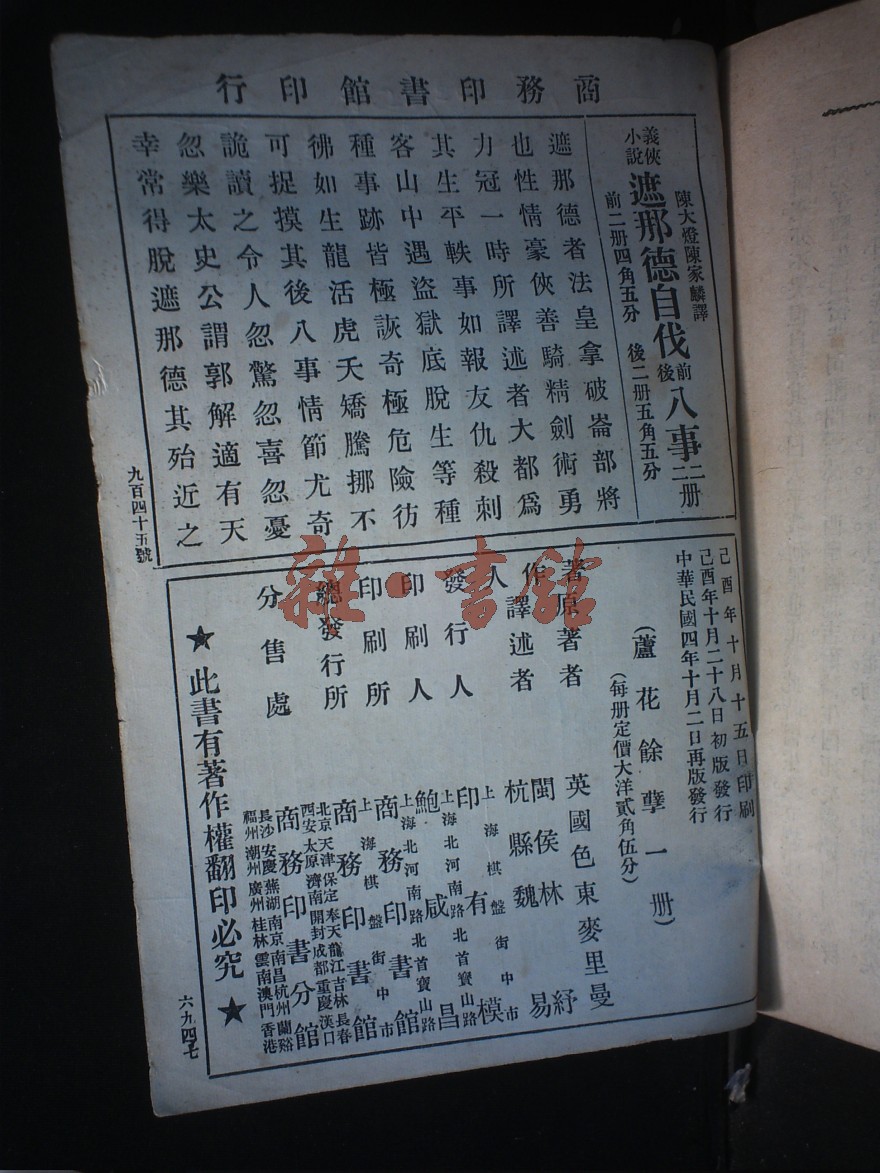 商務印書館印行
義俠小說
陳大燈陳家麟譯
遮那德自伐前後八事二二册
前二册四角五分 後二册五角五分
遮那德者法皇拿破崙部將
也性情豪俠善騎精劍術勇
力冠一時所譯述者大都爲
其生平軼事如報友仇殺刺
客山中遇盜獄底脫生等種
種事跡皆極詼奇極危險彷
彿如生龍活虎夭矯騰挪不
可捉摸其後八事情節尤奇
詭讀之令人忽驚忽喜忽憂
忽樂太史公謂郭解適有天
幸常得脫遮那德其殆近之
九百四十五號
己酉年十月十五日印刷
己酉年十月二十八日初版發行
中華民國四年十月二日再版發行
(蘆花餘孽一册)
(每册定價大洋貳角伍分)
著作人
原著者 英國色東麥里曼
譯述者 閩侯林紓
杭縣魏易
發行人 印有模
上海棋盤街中市
印刷人 鮑咸昌
上海北河南路北首寶山路
印刷所 商務印書館
上海北河南路北首寶山路
總發行所 商務印書館
上海棋盤街中市
分售處 商務印書分館
北京天津保定奉天龍江吉林長春
西安太原濟南開封成都重慶漢口
長沙安慶蕪湖南京南昌杭州蘭谿
福州潮州廣州桂林雲南澳門香港
★此書有著作權翻印必究★
六九四七
雜·書館